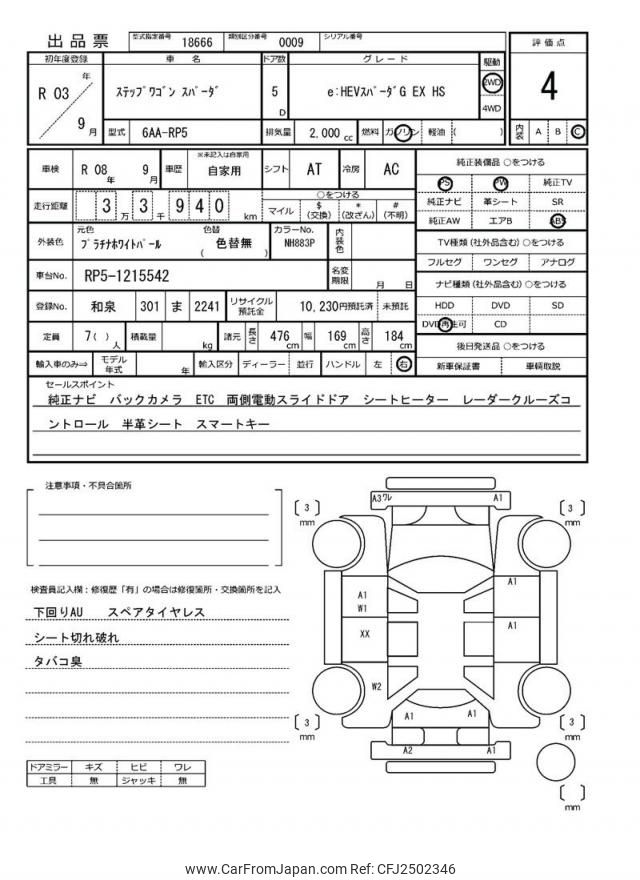 出品票 型式指定番号 18666 類別区分番号 0009 シリアル番号
初年度登録 車名 ドア数 グレード 駆動 評価点
R 03 年 9 月 ステップワゴン スパーダ 5 D e:HEVスパーダG EX HS 2WD 4WD 4
型式 6AA-RP5 排気量 2,000 cc 燃料 ガソリン 軽油 ( ) 内装 A B C
車検 R 08 年 9 月 車歴 ※未記入は自家用 自家用 シフト AT 冷房 AC
純正装備品 ○をつける
PS PW 純正TV
純正ナビ 革シート SR
純正AW エアB ABS
走行距離 3 万 3 千 9 4 0 km
○をつける
マイル $ (交換) * (改ざん) # (不明)
TV種類 (社外品含む) ○をつける
フルセグ ワンセグ アナログ
外装色 元色 プラチナホワイトパール 色替 色替無 ( ) カラーNo. NH883P 内装色
ナビ種類 (社外品含む) ○をつける
HDD DVD SD
DVD再生可 CD
車台No. RP5-1215542 名変期限 月 日
登録No. 和泉 301 ま 2241 リサイクル預託金 10,230円預託済 未預託
定員 7( ) 人 積載量 kg 諸元 長さ 476 cm 幅 169 cm 高さ 184 cm
後日発送品 ○をつける
新車保証書 車輌取説
輸入車のみ⇒ モデル年式 年 輸入区分 ディーラー 並行 ハンドル 左 右
セールスポイント
純正ナビ バックカメラ ETC 両側電動スライドドア シートヒーター レーダークルーズコ
ントロール 半革シート スマートキー
注意事項・不具合箇所
検査員記入欄：修復歴「有」の場合は修復箇所・交換箇所を記入
下回りAU スペアタイヤレス
シート切れ破れ
タバコ臭
ドアミラー キズ ヒビ ワレ
工具 無 ジャッキ 無
A3ワレ A1
3 mm
3 mm
A1
W1
A1
XX
A1
W2
A1 A1
A2 A1
3 mm
3 mm
mm
www.CarFromJapan.com Ref: CFJ2502346